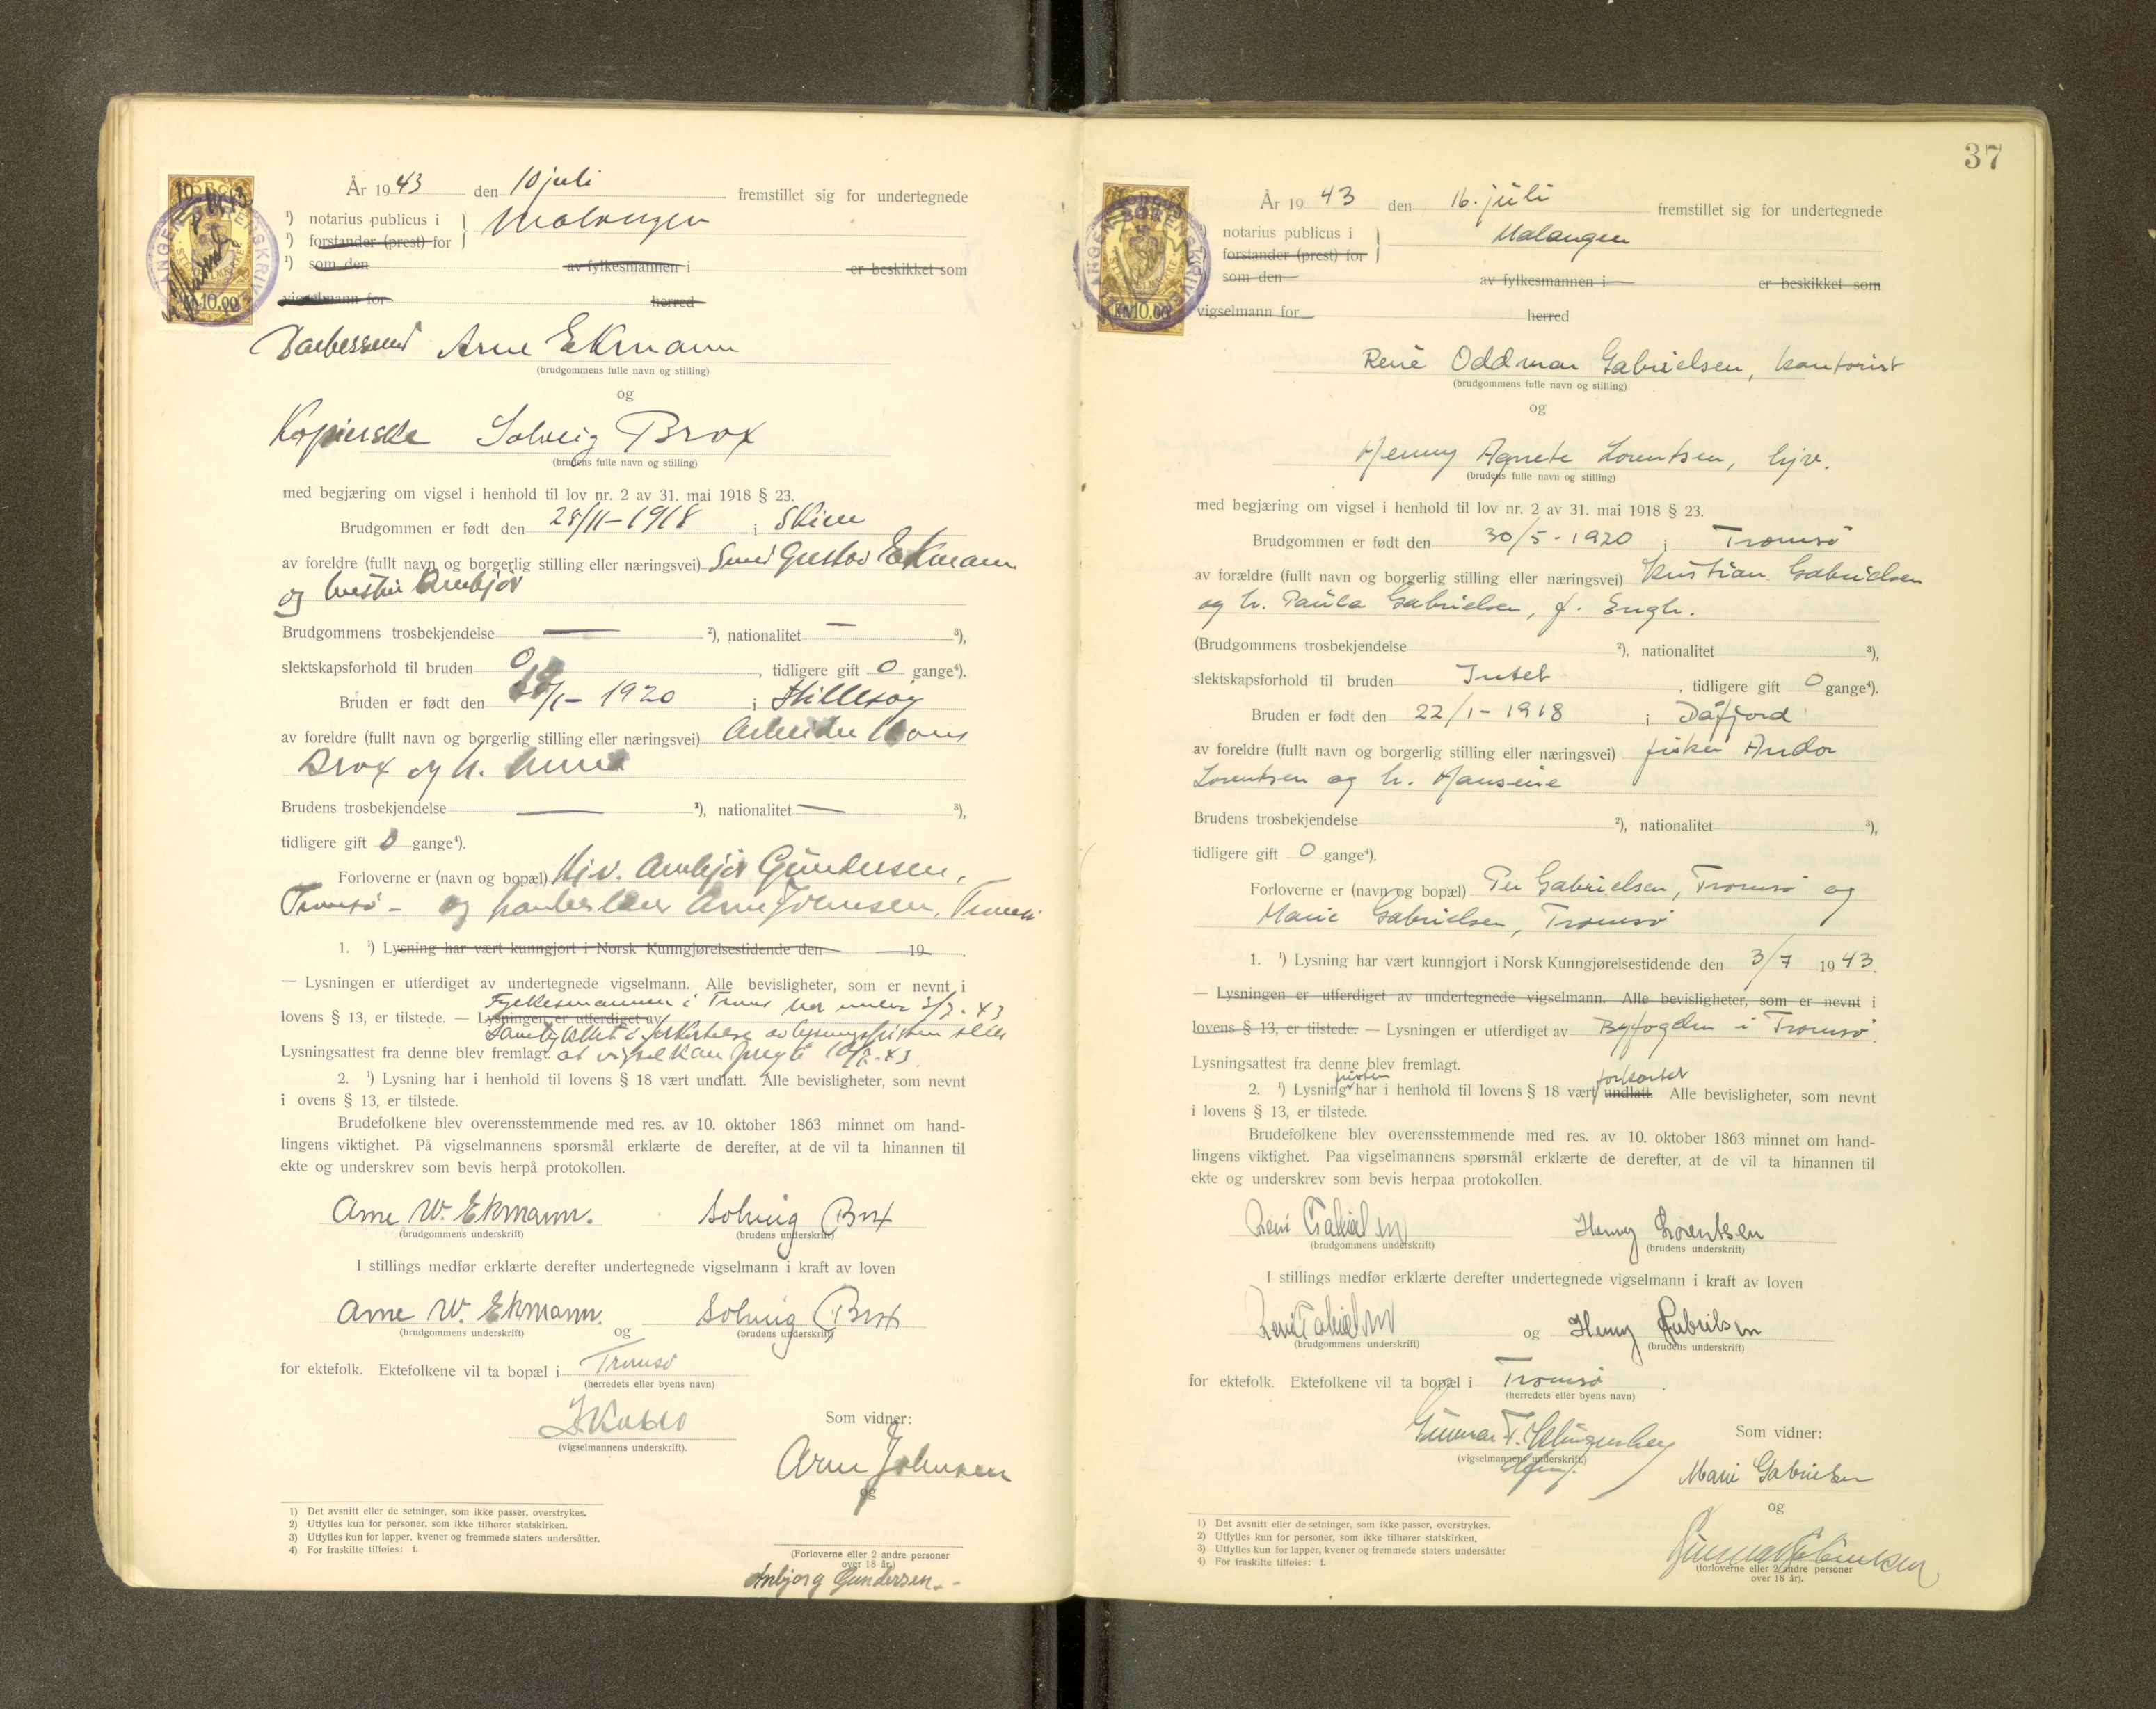 År 1943 den 10 juli fremstillet sig for undertegnede
¹) notarius publicus i Malangen
¹) forstander (prest) for
¹) som den av fylkesmannen i er beskikket som
vigselmann for herred
Arne Ekmann
(brudgommens fulle navn og stilling)
og
Solveig Brox
(brudens fulle navn og stilling)
med begjæring om vigsel i henhold til lov nr. 2 av 31. mai 1918 § 23.
Brudgommen er født den 28/11-1918 i Skien
av foreldre (fullt navn og borgerlig stilling eller næringsvei) Smed Gustav Ekmann
og
Brudgommens trosbekjendelse — ²), nationalitet — ³),
slektskapsforhold til bruden 0, tidligere gift 0 gange⁴).
Bruden er født den /1- 1920 i Hillesøy
av foreldre (fullt navn og borgerlig stilling eller næringsvei) Arbeider Hans
Brox og h. Anna
Brudens trosbekjendelse — ²), nationalitet — ³),
tidligere gift 0 gange⁴).
Forloverne er (navn og bopæl) Hjv. Arnbjør Gundersen,
Tromsø - og Arne Johnsen, Tromsø
1. ¹) Lysning har vært kunngjort i Norsk Kunngjørelsestidende den 19 .
— Lysningen er utferdiget av undertegnede vigselmann. Alle bevisligheter, som er nevnt i
Fylkesmannen i Troms har under 3/7-43
lovens § 13, er tilstede. — Lysningen er utferdiget av
samtykket i forkortelse av lysningsfristen slik
Lysningsattest fra denne blev fremlagt. at vigsel kan foregå 10/7-43
2. ¹) Lysning har i henhold til lovens § 18 vært undlatt. Alle bevisligheter, som nevnt
i ovens § 13, er tilstede.
Brudefolkene blev overensstemmende med res. av 10. oktober 1863 minnet om hand-
lingens viktighet. På vigselmannens spørsmål erklærte de derefter, at de vil ta hinannen til
ekte og underskrev som bevis herpå protokollen.
Arne W. Ekmann. Solveig Brox
(brudgommens underskrift) (brudens underskrift)
I stillings medfør erklærte derefter undertegnede vigselmann i kraft av loven
Arne W. Ekmann. Solveig Brox
(brudgommens underskrift) og (brudens underskrift)
for ektefolk. Ektefolkene vil ta bopæl i Tromsø
(herredets eller byens navn)
Som vidner:
(vigselmannens underskrift).
Arne Johnsen
og
1) Det avsnitt eller de setninger, som ikke passer, overstrykes.
2) Utfylles kun for personer, som ikke tilhører statskirken.
3) Utfylles kun for lapper, kvener og fremmede staters undersåtter.
4) For fraskilte tilføies: f.
(Forloverne eller 2 andre personer
over 18 år.)
Anbjørg Gundersen.
37
År 1943 den 16. juli fremstillet sig for undertegnede
notarius publicus i Malangen
forstander (prest) for
som den av fylkesmannen i er beskikket som
vigselmann for herred
René Oddmar Gabrielsen, kontorist
(brudgommens fulle navn og stilling)
og
Henny Agnete Lorentsen, hjv.
(brudens fulle navn og stilling)
med begjæring om vigsel i henhold til lov nr. 2 av 31. mai 1918 § 23.
Brudgommen er født den 30/5-1920 i Tromsø
av forældre (fullt navn og borgerlig stilling eller næringsvei) Kristian Gabrielsen
og h. Paula Gabrielsen, f. Engh.
(Brudgommens trosbekjendelse ²), nationalitet ³),
slektskapsforhold til bruden Intet, tidligere gift 0 gange⁴).
Bruden er født den 22/1-1918 i Dåfjord
av foreldre (fullt navn og borgerlig stilling eller næringsvei) fisker Andor
Lorentsen og h. Hansine
Brudens trosbekjendelse ²), nationalitet ³),
tidligere gift 0 gange⁴).
Forloverne er (navn og bopæl) Per Gabrielsen, Tromsø og
Marie Gabrielsen, Tromsø
1. ¹) Lysning har vært kunngjort i Norsk Kunngjørelsestidende den 3/7 1943.
— Lysningen er utferdiget av undertegnede vigselmann. Alle bevisligheter, som er nevnt i
lovens § 13, er tilstede. — Lysningen er utferdiget av Byfogden i Tromsø.
Lysningsattest fra denne blev fremlagt.
fristen forkortet
2. ¹) Lysning har i henhold til lovens § 18 vært undlatt. Alle bevisligheter, som nevnt
i lovens § 13, er tilstede.
Brudefolkene blev overensstemmende med res. av 10. oktober 1863 minnet om hand-
lingens viktighet. Paa vigselmannens spørsmål erklærte de derefter, at de vil ta hinannen til
ekte og underskrev som bevis herpaa protokollen.
René Gabrielsen Henny Lorentsen
(brudgommens underskrift) (brudens underskrift)
I stillings medfør erklærte derefter undertegnede vigselmann i kraft av loven
René Gabrielsen og Henny Gabrielsen
(brudgommens underskrift) (brudens underskrift)
for ektefolk. Ektefolkene vil ta bopæl i Tromsø
(herredets eller byens navn)
Gunnar F. Klingenberg Som vidner:
(vigselmannens underskrift.)
Marie Gabrielsen
og
1) Det avsnitt eller de setninger, som ikke passer, overstrykes.
2) Utfylles kun for personer, som ikke tilhører statskirken.
3) Utfylles kun for lapper, kvener og fremmede staters undersåtter
4) For fraskilte tilføies: f.
(forloverne eller 2 andre personer
over 18 år).